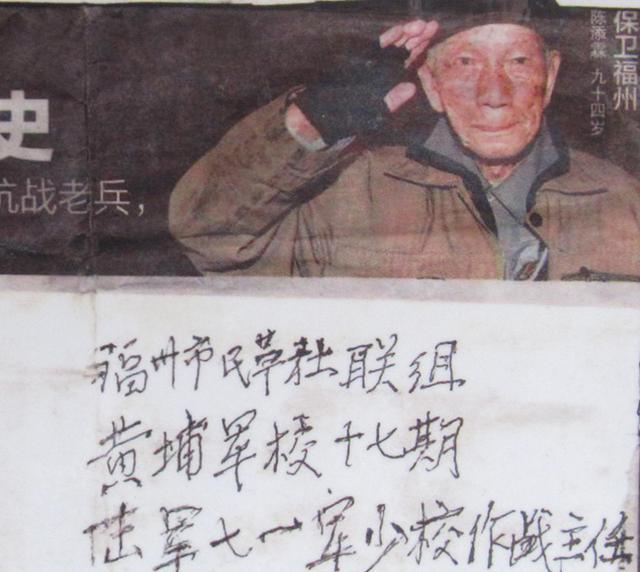 保卫福州
陈添霖 九十四岁
史
抗战老兵，
福州市民革社联组
黄埔军校十七期
陆军七一军少校作战主任